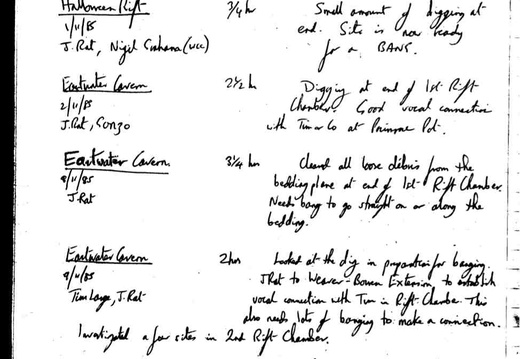 Halloween Rift 3/4 hr Small amount of digging at
1/11/85 end. Site is now ready
J. Rat, Nigel Graham (WCC) for a BANG.
Eastwater Cavern 2 1/2 hr Digging at end of 1st Rift
2/11/85 Chamber. Good vocal connection
J. Rat, Gonzo with Tim & Co at Primrose Pot.
Eastwater Cavern 3 1/4 hrs Cleared all loose debris from the
8/11/85 bedding plane at end of 1st Rift Chamber.
J. Rat Needs bang to go straight on or along the
bedding.
Eastwater Cavern 2 hrs Looked at the dig in preparation for banging.
9/11/85 J Rat to Weaver-Bowen Extension to establish
Tim Large, J. Rat vocal connection with Tim in Rift Chamber. This
also needs lots of banging to make a connection.
Investigated a few sites in 2nd Rift Chamber.